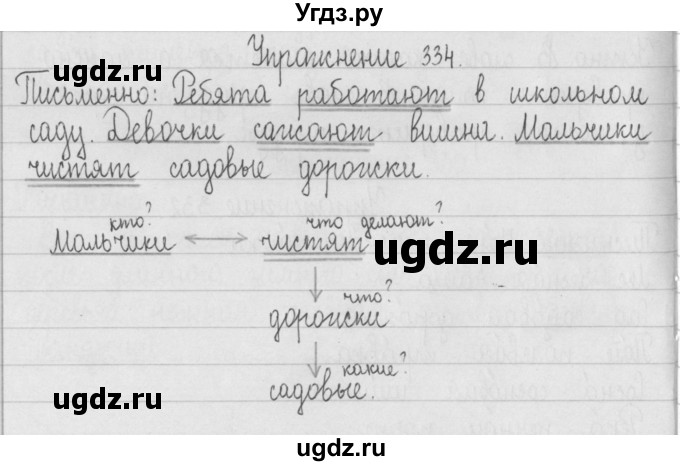 Угдз.ру
Упражнение 334.
ugdz.ru
ugdz.ru
Письменно: Ребята работают в школьном
саду. Девочки сажают вишни. Мальчики
чистят садовые дорожки.
кто? что делают?
Мальчики ⟷ чистят
ugdz.ru
↓ что?
дорожки
↓ какие?
садовые.
ugdz.ru
ugdz.ru
ugdz.ru